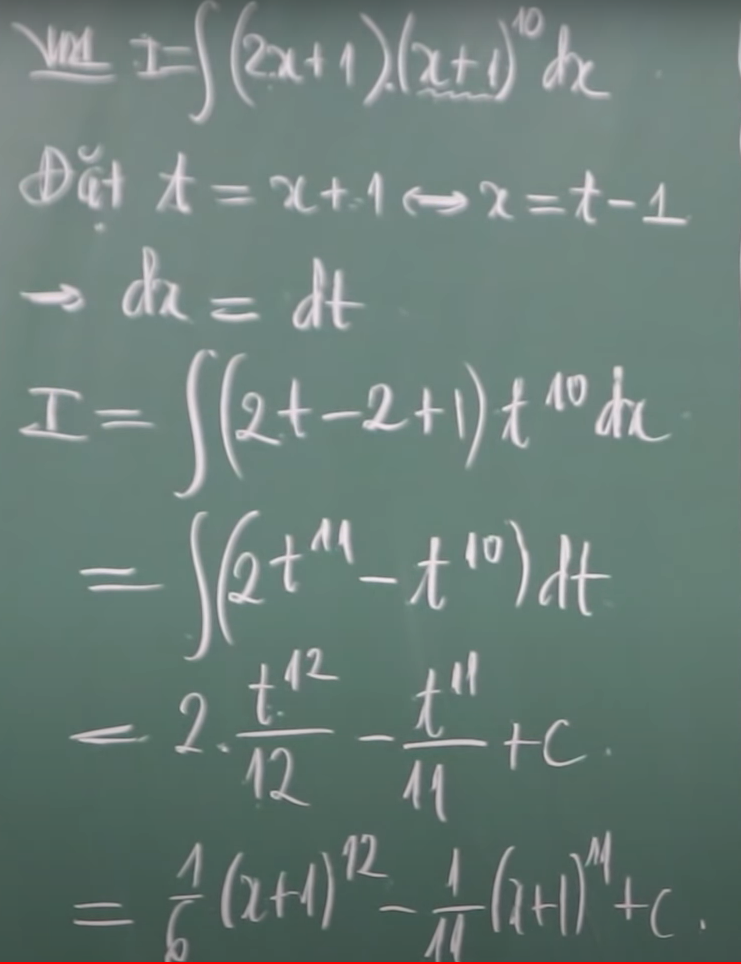 VD1 I=∫(2x+1).(x+1)^10 dx
Đặt t = x+1 ↔ x = t-1
→ dx = dt
I = ∫(2t-2+1) t^10 dx
= ∫(2t^11 - t^10) dt
= 2. t^12/12 - t^11/11 + C.
= 1/6 (x+1)^12 - 1/11 (x+1)^11 + C.